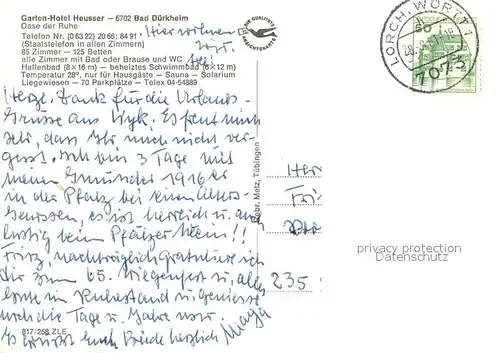 Garten-Hotel Heusser — 6702 Bad Dürkheim
Oase der Ruhe
Telefon Nr. (0 63 22) 20 66; 84 91
(Staatstelefon in allen Zimmern)
85 Zimmer — 125 Betten
alle Zimmer mit Bad oder Brause und WC
Hallenbad (8 × 16 m) — beheiztes Schwimmbad (6 × 12 m)
Temperatur 28°, nur für Hausgäste — Sauna — Solarium
Liegewiesen — 70 Parkplätze — Telex 04-54889
Hier wohnen
wir.
DIE QUALITÄTS
ANSICHTSKARTE
Herzl. Dank für die Urlaubs-
Grüsse aus Wyk. Es freut mich
sehr, dass Ihr mich nicht ver-
gesst. Ich bin 3 Tage mit
meinen Gmünder 1916er
in der Pfalz bei einem Alters-
genossen, es ist herrlich u. auch
lustig beim Pfälzer Wein!!
Fritz, nachträglich gratuliere ich
Dir zum 65. Wiegenfest u. alles
Gute im Ruhestand u. geniesse
noch die Tage u. Jahre
Es grüsst Euch beide herzlich
817/258 ZLE
Gebr. Metz, Tübingen
LORCH, WÜRTT 1
7073
Her
Fri
235
privacy protection
Datenschutz